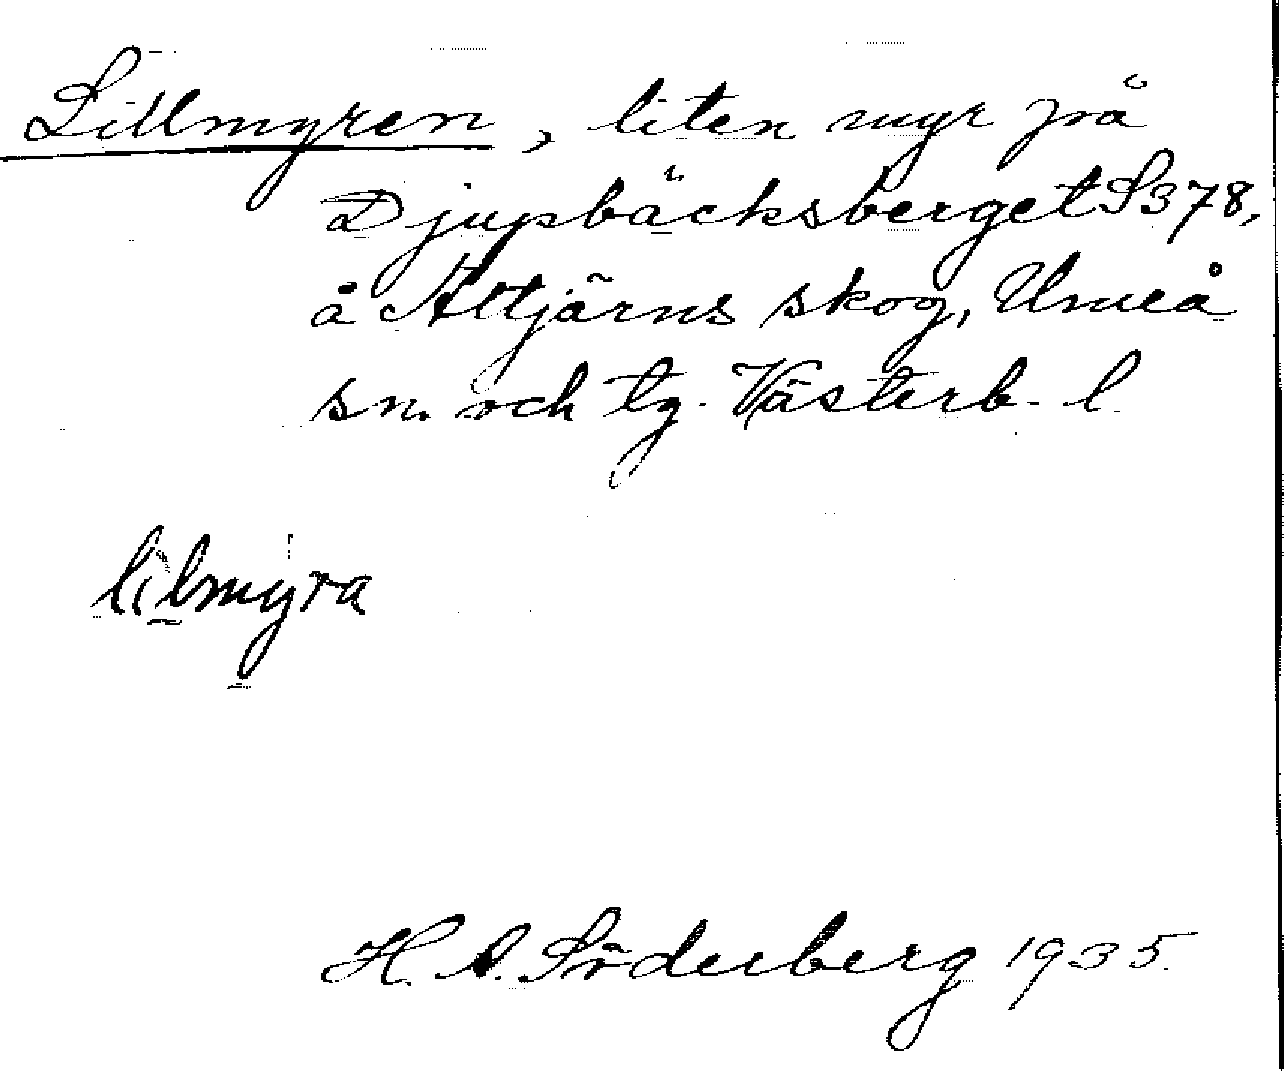 Lillmyren, liten myr på
Djupbäcksberget S378,
å Åttjärns skog, Umeå
sn. och tg. Västerb. l.
lilmyra
H. A. Söderberg 1935.